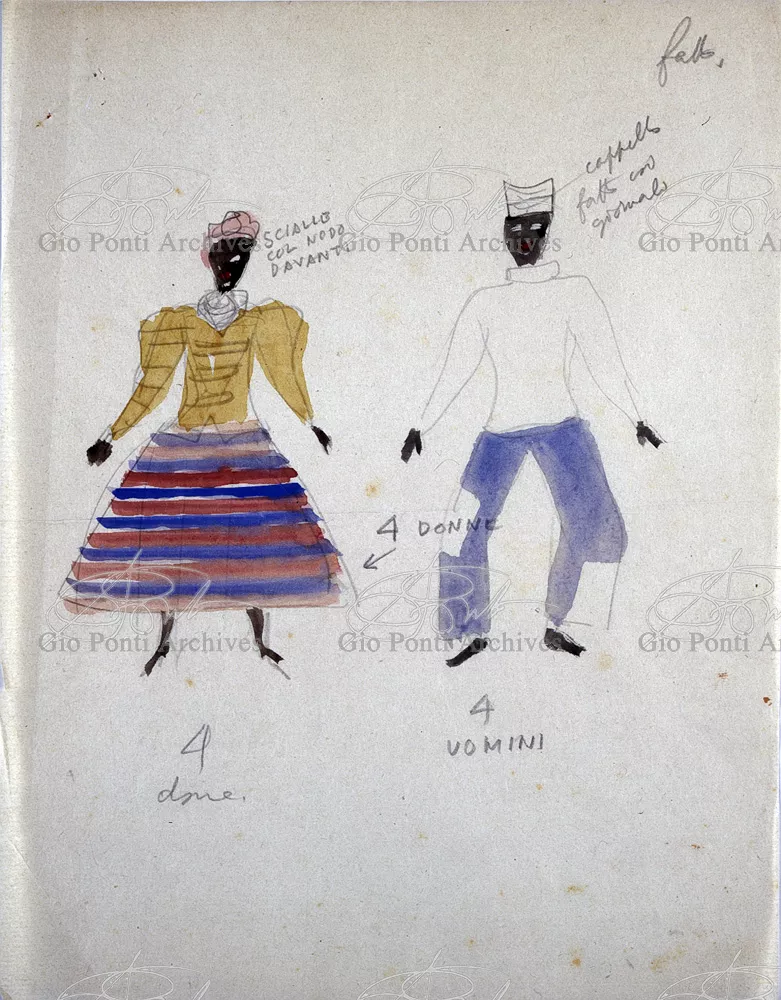 fatto,
cappello
fatto con
giornale
SCIALLE
COL NODO
DAVANTI
4 DONNE
4
UOMINI
4
donne.
Gio Ponti Archives
Gio Ponti Archives
Gio Ponti A
Gio Ponti Archives
Gio Ponti Archives
Gio Ponti A